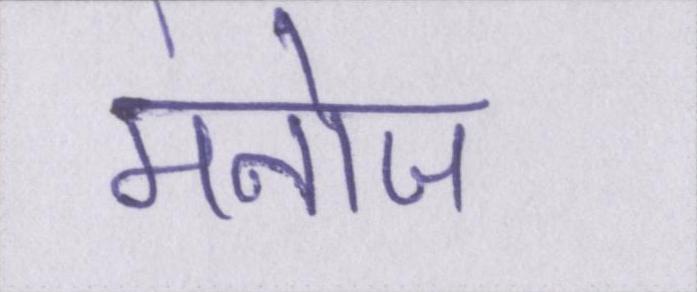 मंनोज